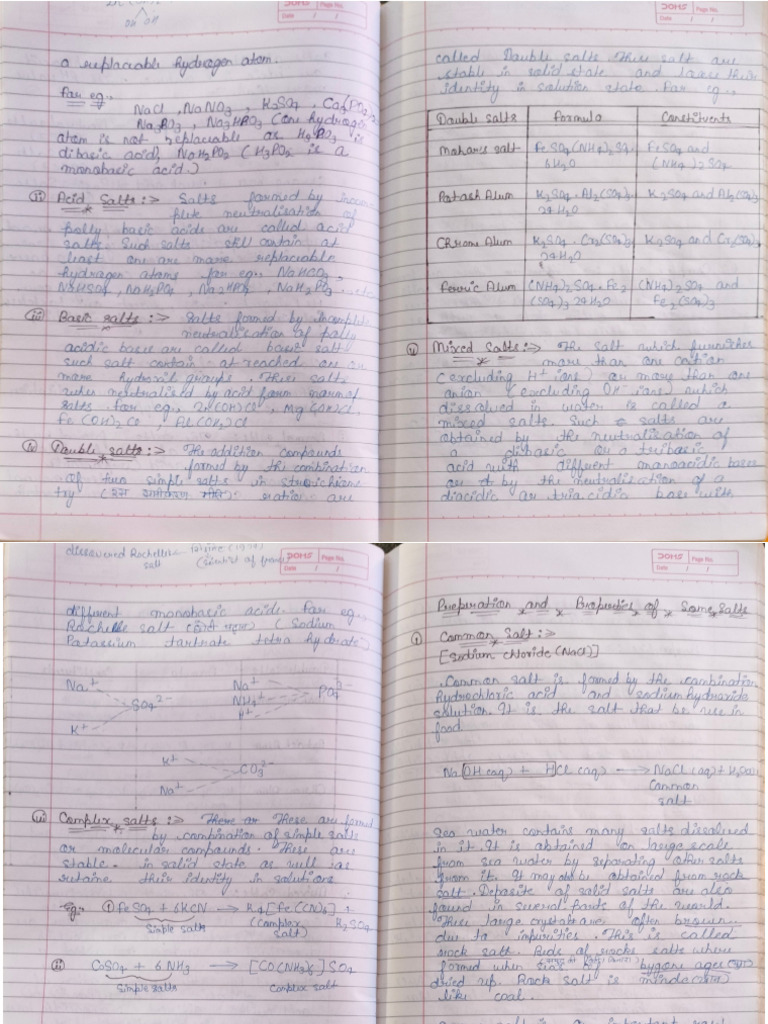 OH OH
a replaceable hydrogen atom.
For eg.,
NaCl, NaNO3, K2SO4, Ca3(PO4)2,
Na2PO3, Na2HPO3 (one hydrogen
atom is not replaceable as H3PO3 is
dibasic acid, NaH2PO2 (H3PO2 is a
monobasic acid.)
ii) Acid Salts :-> Salts formed by incom
plete neutralisation of
polly basic acids are called acid
salts. Such salts still contain at
least one or more replaceable
hydrogen atoms for eg., NaHCO3,
NaHSO4, NaH2PO4, Na2HPO4, NaH2PO3
iii) Basic salts :-> Salts formed by incomplete
neutralisation of polly
acidic base are called basic salts
such salt contain at reached one or
more hydroxil groups. These salts
when neutralised by acid form normal
salts. For eg., Zn(OH)Cl, Mg(OH)Cl,
Fe(OH)2Cl, Al(OH)2Cl
iv) Double salts :-> The addition compounds
formed by the combination
of two simple salts in stroichiome
try ratio are
DOMS
Page No.
Date / /
called Double salts. These salt are
stable in solid state and loose their
identity in solution state. For eg.,
Double salts Formula Constituents
Mohar's salt FeSO4(NH4)2SO4. FeSO4 and
6H2O (NH4)2SO4
Potash Alum K2SO4.Al2(SO4)3. K2SO4 and Al2(SO4)3
24H2O
Chrome Alum K2SO4.Cr2(SO4)3. K2SO4 and Cr2(SO4)3
24H2O
Ferric Alum (NH4)2SO4.Fe2 (NH4)2SO4 and
(SO4)3 24H2O Fe2(SO4)3
v) Mixed Salts :-> The salt which furnishes
more than one cation
(excluding H+ ions) or more than one
anion (excluding OH- ions) which
dissolved in water is called a
mixed salts. Such salts are
obtained by the neutralisation of
a dibasic or a tribasic
acid with diffrent monoacidic bases
or by the neutralisation of a
diacidic or triacidic base with
DOMS
Page No.
Date / /
discovered Rochelle
salt (Scientist of france)
different monobasic acids. For eg.
Rochelle salt (Sodium
Potassium tartrate tetra hydrate)
Na+ SO4 2-
K+
Na+
NH4+ PO4 3-
H+
K+ CO3 2-
Na+
Complex salts :-> There or These are formed
by combination of simple salts
or molecular compounds. These are
stable in solid state as well as
retaine their identity in solutions
Eg:- i) FeSO4 + 6KCN -> K4[Fe(CN)6] +
simple salts (Complex salt) K2SO4
ii) CoSO4 + 6NH3 -> [CO(NH3)6]SO4
Simple salts Complex salt
DOMS
Page No.
Date / /
Preperation and Properties of Some Salts
i) Common Salt :->
[Sodium chloride (NaCl)]
Common salt is formed by the combination
Hydrochloric acid and sodium hydroxide
solution. It is the salt that be use in
food
NaOH(aq) + HCl(aq) -> NaCl(aq) + H2O(l)
Common
salt
Sea water contains many salts dissolved
in it. It is obtained on large scale
from sea water by separating other salts
from it. It may also be obtained from rock
salt. Deposite of solid salts are also
found in several parts of the world.
These large crystals are often brown
due to impurities. This is called
rock salt. Beds of rocks salts where
formed when seas of bygone ages
dried up. Rock salt is minde
like coal.
salt is an important